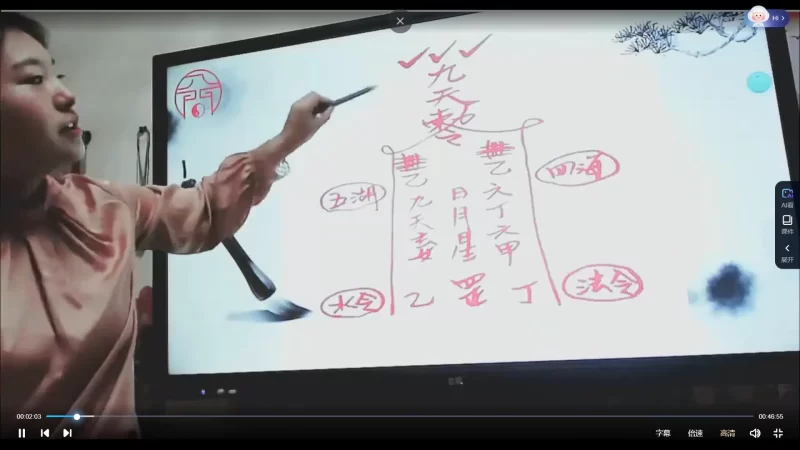 Hi
九
天
五湖
四海
乙
九
天
日
月
星
乙
六
丁
六
甲
水令
法令
乙
罡
丁
AI看
课件
展开
00:02:03
00:46:55
字幕
倍速
高清